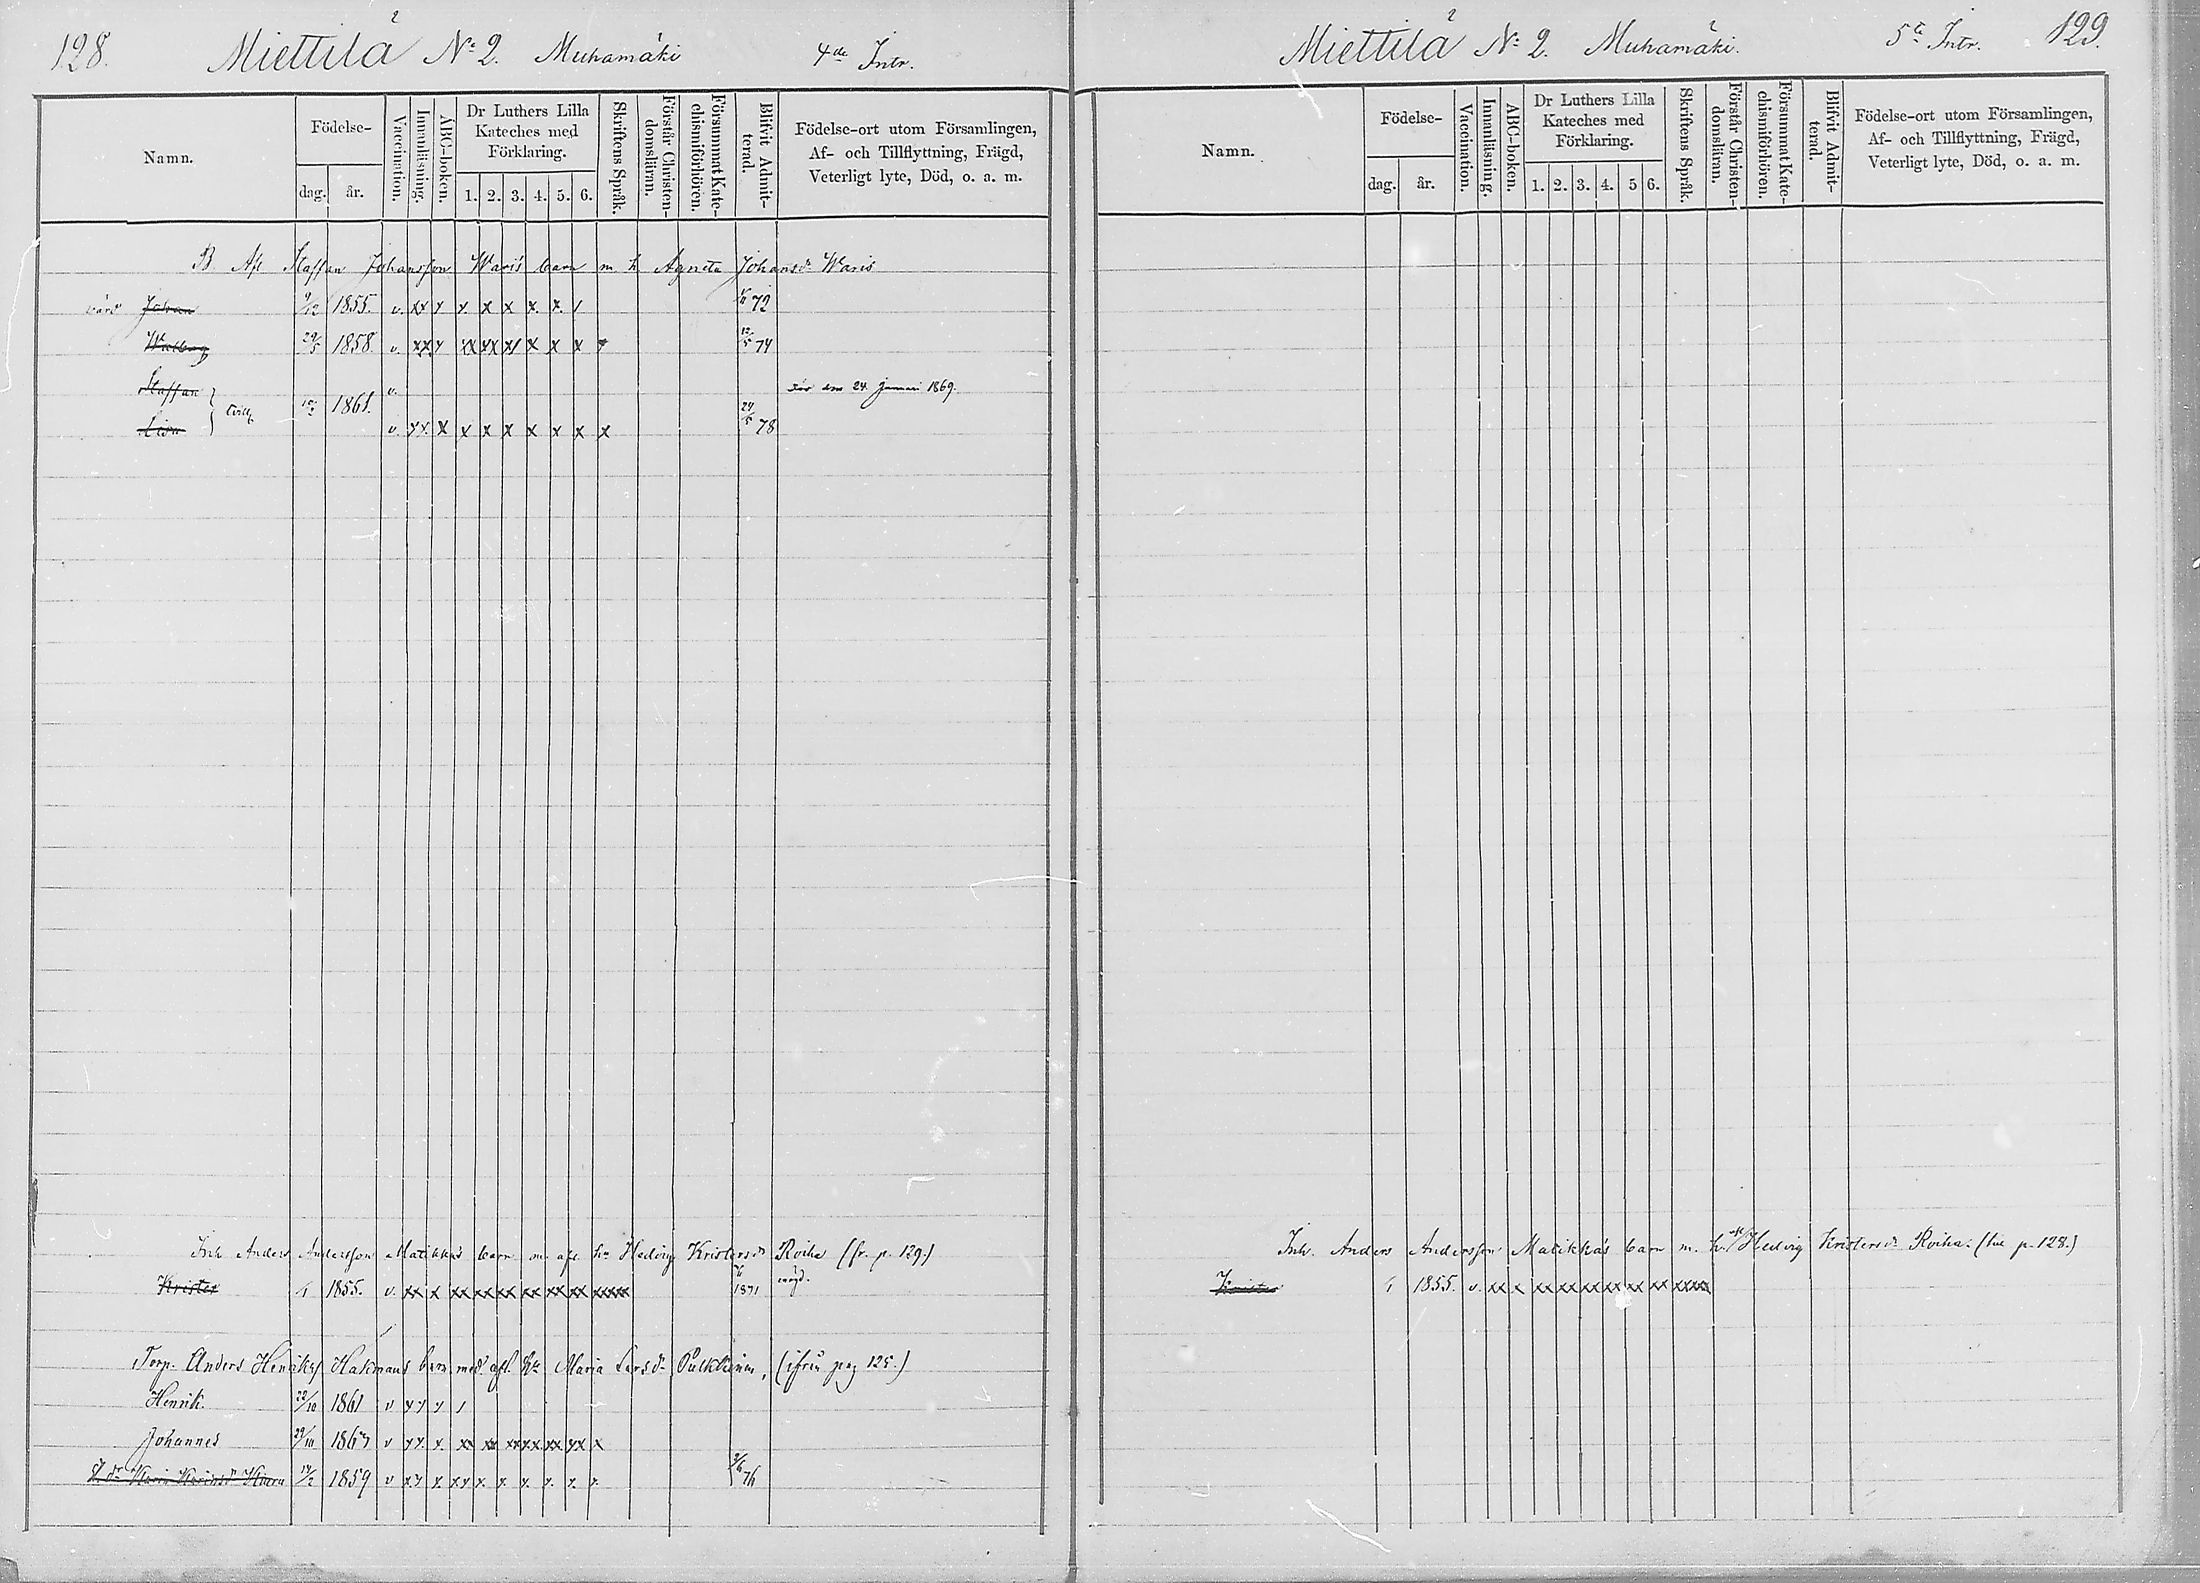 128. Miettilä No 2. Muhamäki 4de Intr.
Namn. Födelse- dag. år. Vaccination. Innanläsning. ABC-boken. Dr Luthers Lilla Kateches med Förklaring. 1. 2. 3. 4. 5. 6. Skriftens Språk. Förstår Christen-domsläran. Försummat Kate-chismiförhören. Blifvit Admit-terad. Födelse-ort utom Församlingen, Af- och Tillflyttning, Frägd, Veterligt lyte, Död, o. a. m.
B. Afl Staffan Johansson Waris barn m. h. Agneta Johansdr Waris
Johan 9/12 1855. v. xx x x. x x x. x. / 72
Walborg 29/5 1858. v. xx x xx xx x/ x x x 12/5 74
Staffan v. död den 24 januari 1869.
1861.
Lisa v. xx. x x x x x x x x 24/5 78
Inh. Anders Andersson Matikka's barn m. afl. h. Hedvig Kristersdr Roiha (fr. p. 129.)
Krister 1855. v. xx x xx xx xx xx xx xx xxxx 1871
Torp. Anders Henrikss Hakmans barn med afl. H. Maria Larsdr Pulkkinen, (ifrån pag 125.)
Henrik 22/10 1861 v x x x /
Johannes 29/10 1867 v xx. x. xx xx xx xx. xx. xx x
1859 v xx x. xx x. x. x. x. x. x. 76
129. Miettilä No 2. Muhamäki. 5te Intr.
Namn. Födelse- dag. år. Vaccination. Innanläsning. ABC-boken. Dr Luthers Lilla Kateches med Förklaring. 1. 2. 3. 4. 5 6. Skriftens Språk. Förstår Christen-domsläran. Försummat Kate-chismiförhören. Blifvit Admit-terad. Födelse-ort utom Församlingen, Af- och Tillflyttning, Frägd, Veterligt lyte, Död, o. a. m.
Inh. Anders Andersson Matikka's barn m. h. Hedvig Kristersdr Roiha. (p. 128.)
Krister 1855. v. xx x xx xx xx xx xx xx xxxx